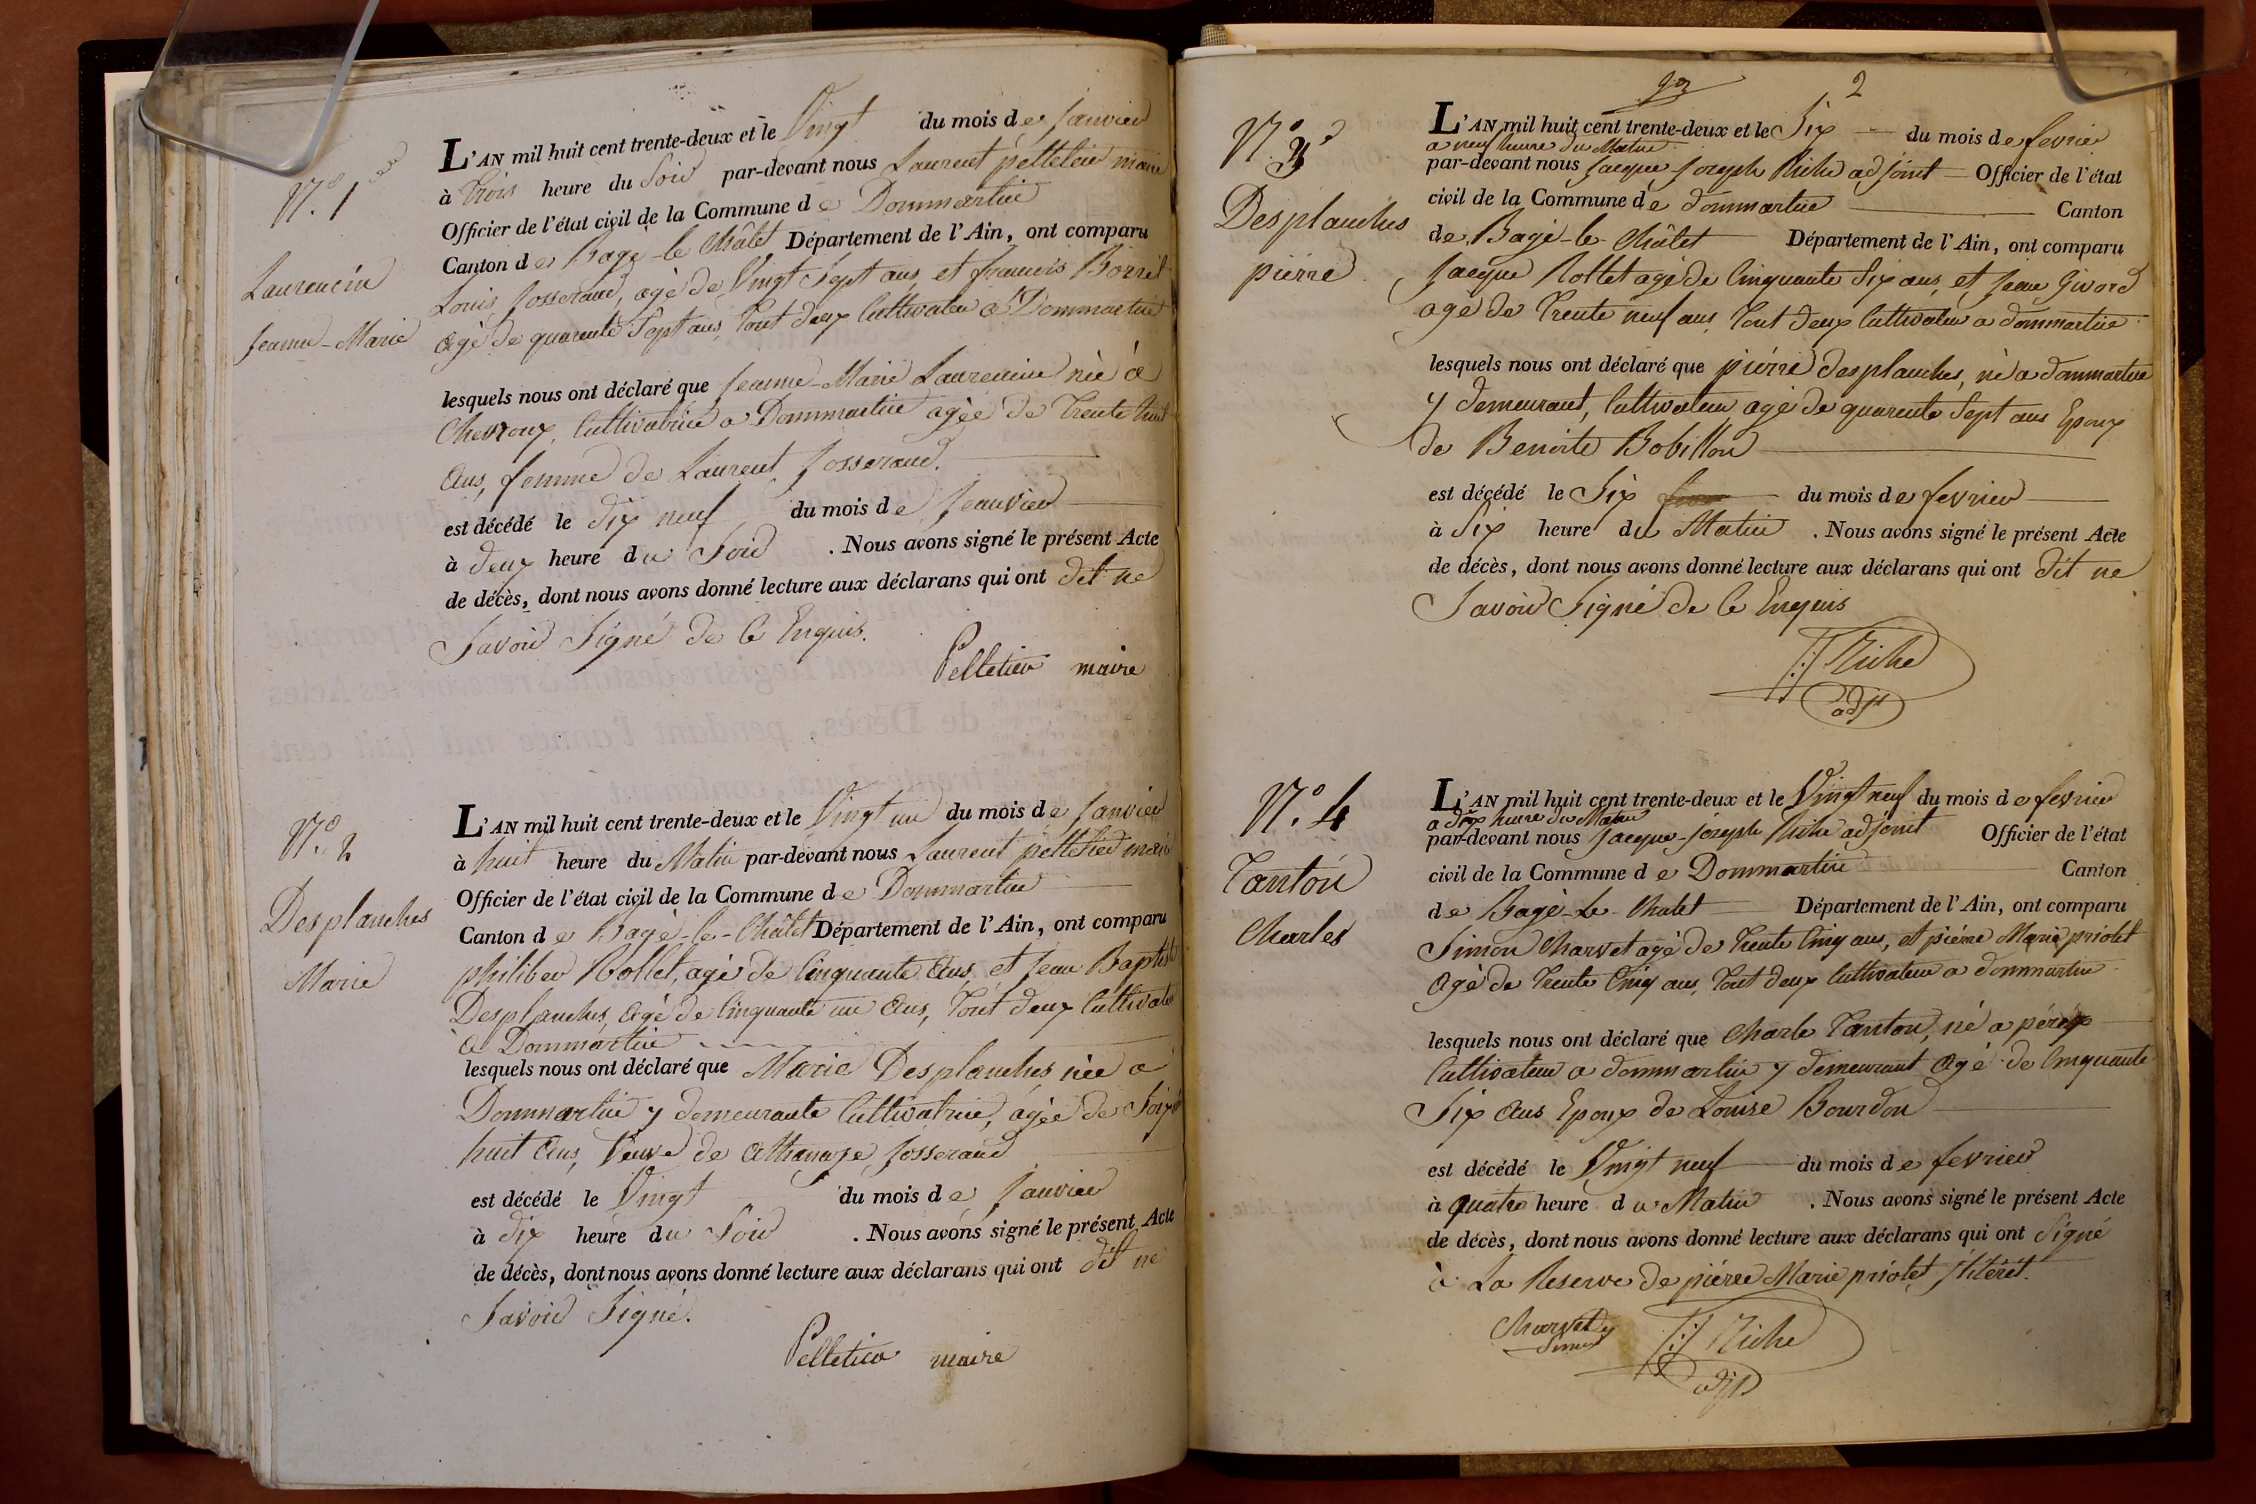 N.º 1
Laurencin
Jeanne-Marie
L'AN mil huit cent trente-deux et le Vingt du mois de Janvier
à trois heure du Soir par-devant nous Laurent pelletier maire
Officier de l'état civil de la Commune de Dommartin
Canton de Bagé-le-Châtel Département de l'Ain, ont comparu
Louis Josserand, agé de Vingt Sept ans, et francois Borrel
agé de quarente Sept ans, tout deux Cultivateur a Dommartin
lesquels nous ont déclaré que Jeanne-Marie Laurencin née à
Chevroux, Cultivatrice a Dommartin agée de trente huit
ans, femme de Laurent Josserand.
est décédé le dix neuf du mois de Jeanvier
à deux heure du Soir . Nous avons signé le présent Acte
de décès, dont nous avons donné lecture aux déclarans qui ont dit ne
Savoir Signé de ce Enquis.
Pelletier maire
N.º 2
Desplanches
Marie
L'AN mil huit cent trente-deux et le Vingt un du mois de Janvier
à huit heure du Matin par-devant nous Laurent pelletier maire
Officier de l'état civil de la Commune de Dommartin
Canton de Bagé-le-Châtel Département de l'Ain, ont comparu
philiber Rollet, agé de Cinquante ans, et Jean Baptiste
Desplanches, agé de Cinquante un ans, tout deux Cultivateur
à Dommartin
lesquels nous ont déclaré que Marie Desplanches née a
Dommartin y demeurante Cultivatrice, agée de Soixte
huit ans, Veuve de athanaze Josserand
est décédé le Vingt du mois de Janvier
à dix heure du Soir . Nous avons signé le présent Acte
de décès, dont nous avons donné lecture aux déclarans qui ont dit ne
Savoir Signé.
Pelletier maire
2
N.º 3
Desplanches
pierre
L'AN mil huit cent trente-deux et le Six du mois de fevrier
a neuf heure du Matin
par-devant nous Jacque Joseph Riche adjoint Officier de l'état
civil de la Commune de dommartin Canton
de Bagé-le-Châtel Département de l'Ain, ont comparu
Jacque Rollet agé de Cinquante Six ans, et Jean Givord
agé de trente neuf ans, tout deux Cultivateur a dommartin
lesquels nous ont déclaré que pierre desplanches, né a dommartin
y demeurant, Cultivateur agé de quarente Sept ans Epoux
de Benoite Bobillon
est décédé le Six du mois de fevrier
à Six heure du Matin . Nous avons signé le présent Acte
de décès, dont nous avons donné lecture aux déclarans qui ont dit ne
Savoir Signé de ce Enquis
JJ Riche
adjt
N.º 4
Tanton
Charles
L'AN mil huit cent trente-deux et le Vingt neuf du mois de fevrier
a dix heure du Matin
par-devant nous Jacque-joseph Riche adjoint Officier de l'état
civil de la Commune de Dommartin Canton
de Bagé-le-Chatel Département de l'Ain, ont comparu
Simon Charvet agé de trente Cinq ans, et pierre Marie priolet
agé de trente Cinq ans, tout deux Cultivateur a dommartin
lesquels nous ont déclaré que Charle Tanton, né a pérèx
Cultivateur a dommartin y demeurant agé de Cinquante
Six ans Epoux de Louise Bourdon
est décédé le Vingt neuf du mois de fevrier
à quatre heure du Matin . Nous avons signé le présent Acte
de décès, dont nous avons donné lecture aux déclarans qui ont Signé
à La Reserve de pierre Marie priolet Jliteret.
Charvet
Simon
JJ Riche
adjt